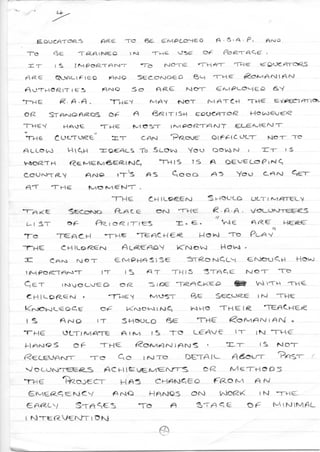 4
EDUCATORS ARE TO BE EMPLOYED A.S.A.P. AND
TO BE TRAINED IN THE USE OF PORTAGE.
IT IS IMPORTANT TO NOTE THAT THE EDUCATORS
ARE QUALIFIED AND SECONDED BY THE ROMANIAN
AUTHORITIES AND SO ARE NOT EMPLOYED BY
THE R.A.A. THEY MAY NOT MATCH THE EXPECTATIONS
OR STANDARDS OF A BRITISH EDUCATOR HOWEVER
THEY HAVE THE MOST IMPORTANT ELEMENT
"THE CULTURE" IT CAN PROVE DIFFICULT NOT TO
ALLOW HIGH IDEALS TO SLOW YOU DOWN, IT IS
WORTH REMEMBERING, THIS IS A DEVELOPING
COUNTRY AND IT'S AS GOOD AS YOU CAN GET
AT THE MOMENT.
THE CHILDREN SHOULD ULTIMATELY
TAKE SECOND PLACE ON THE R.A.A. VOLUNTEERS
LIST OF PRIORITIES I.E. "WE ARE HERE
TO TEACH THE TEACHER HOW TO PLAY"
THE CHILDREN ALREADY KNOW HOW.
I CAN NOT EMPHASISE STRONGLY ENOUGH HOW
IMPORTANT IT IS AT THIS STAGE NOT TO
GET INVOLVED OR SIDE TRACKED WITH THE
CHILDREN. THEY MUST BE SECURE IN THE
KNOWLEDGE OF KNOWING WHO THEIR TEACHER
IS AND IT SHOULD BE THE ROMANIAN.
THE ULTIMATE AIM IS TO LEAVE IT IN THE
HANDS OF THE ROMANIANS. IT IS NOT
RELEVANT TO GO INTO DETAIL ABOUT PAST
VOLUNTEERS ACHIEVEMENTS OR METHODS
THE PROJECT HAS CHANGED FROM AN
EMERGENCY AND HANDS ON WORK IN THE
EARLY STAGES TO A STAGE OF MINIMAL
INTERVENTION
4